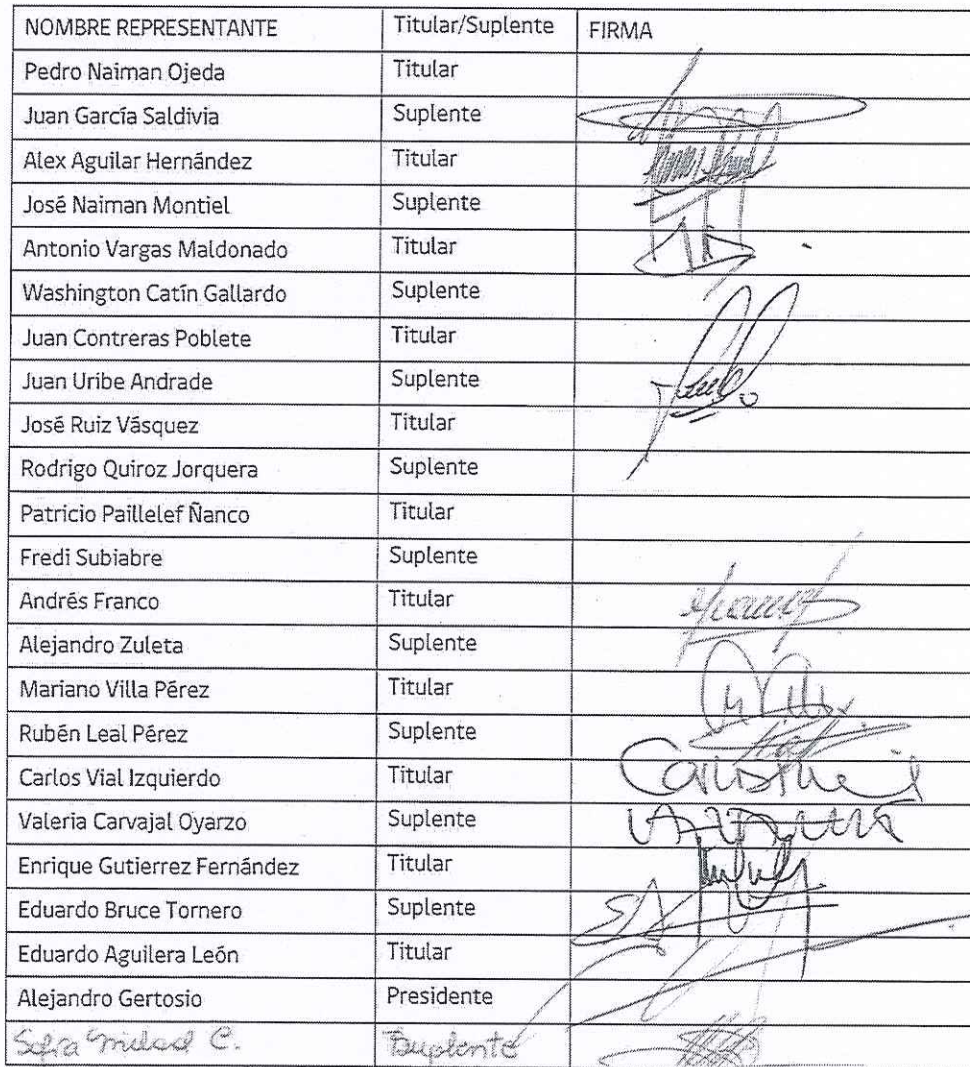 NOMBRE REPRESENTANTE Titular/Suplente FIRMA
Pedro Naiman Ojeda Titular
Juan García Saldivia Suplente
Alex Aguilar Hernández Titular
José Naiman Montiel Suplente
Antonio Vargas Maldonado Titular
Washington Catín Gallardo Suplente
Juan Contreras Poblete Titular
Juan Uribe Andrade Suplente
José Ruiz Vásquez Titular
Rodrigo Quiroz Jorquera Suplente
Patricio Paillelef Ñanco Titular
Fredi Subiabre Suplente
Andrés Franco Titular
Alejandro Zuleta Suplente
Mariano Villa Pérez Titular
Rubén Leal Pérez Suplente
Carlos Vial Izquierdo Titular
Valeria Carvajal Oyarzo Suplente
Enrique Gutierrez Fernández Titular
Eduardo Bruce Tornero Suplente
Eduardo Aguilera León Titular
Alejandro Gertosio Presidente
Sofia Milad C. Suplente